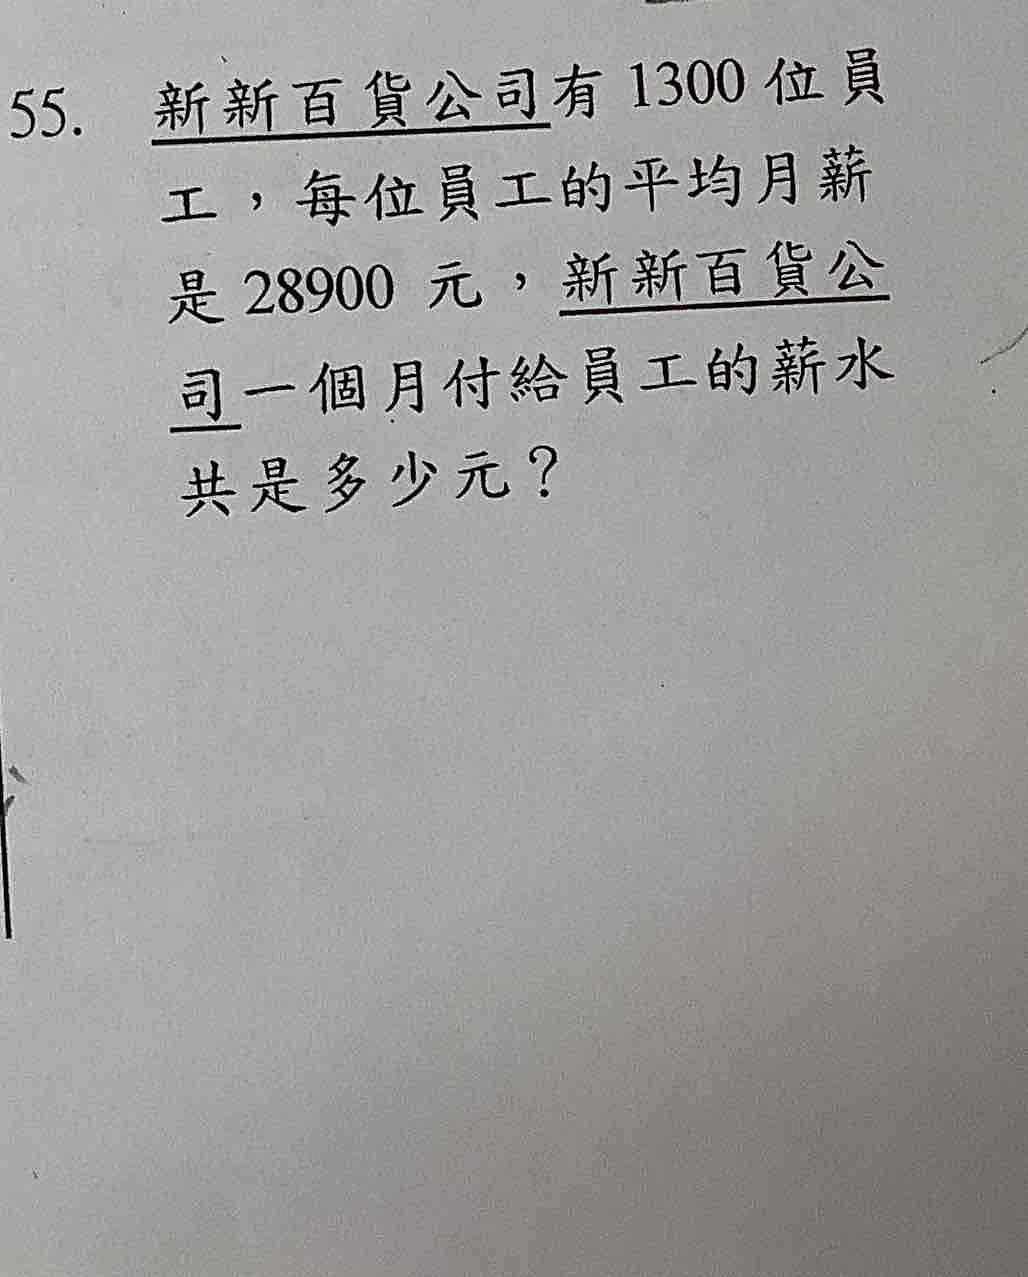 55. 新新百貨公司有 1300 位員
工，每位員工的平均月薪
是 28900 元，新新百貨公
司一個月付給員工的薪水
共是多少元？